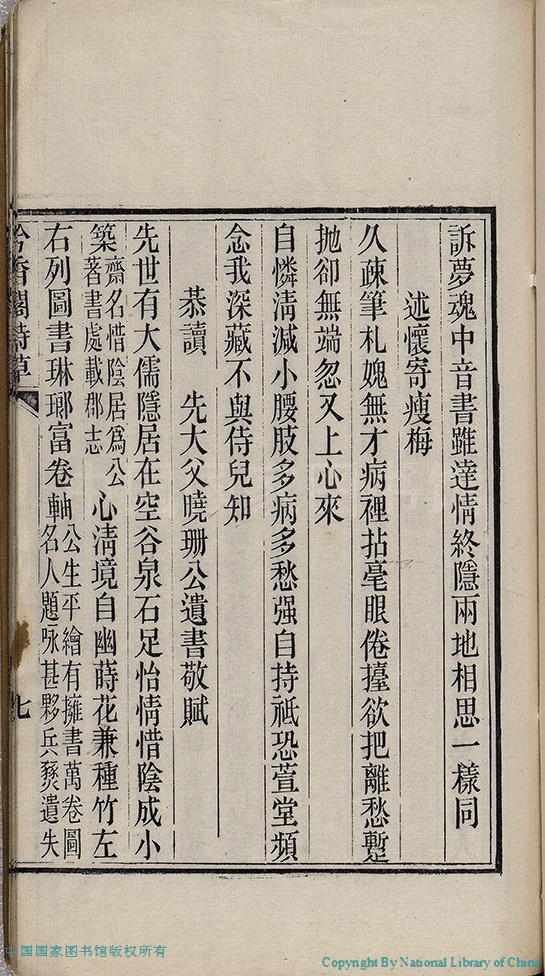 訴夢魂中音書雖達情終隱兩地相思一樣同
述懷寄瘦梅
久疎筆札媿無才病裡拈毫眼倦擡欲把離愁蹔
抛卻無端忽又上心來
自憐淸減小腰肢多病多愁强自持祗恐萱堂頻
念我深藏不與侍兒知
恭讀　先大父曉珊公遺書敬賦
先世有大儒隱居在空谷泉石足怡情惜陰成小
築齋名惜陰居爲公
著書處載郡志
心淸境自幽蒔花兼種竹左
右列圖書琳瑯富卷軸公生平繪有擁書萬卷圖
名人題咏甚夥兵燹遺失
吟香閣詩草
七
中国国家图书馆版权所有
Copyright By National Library of China